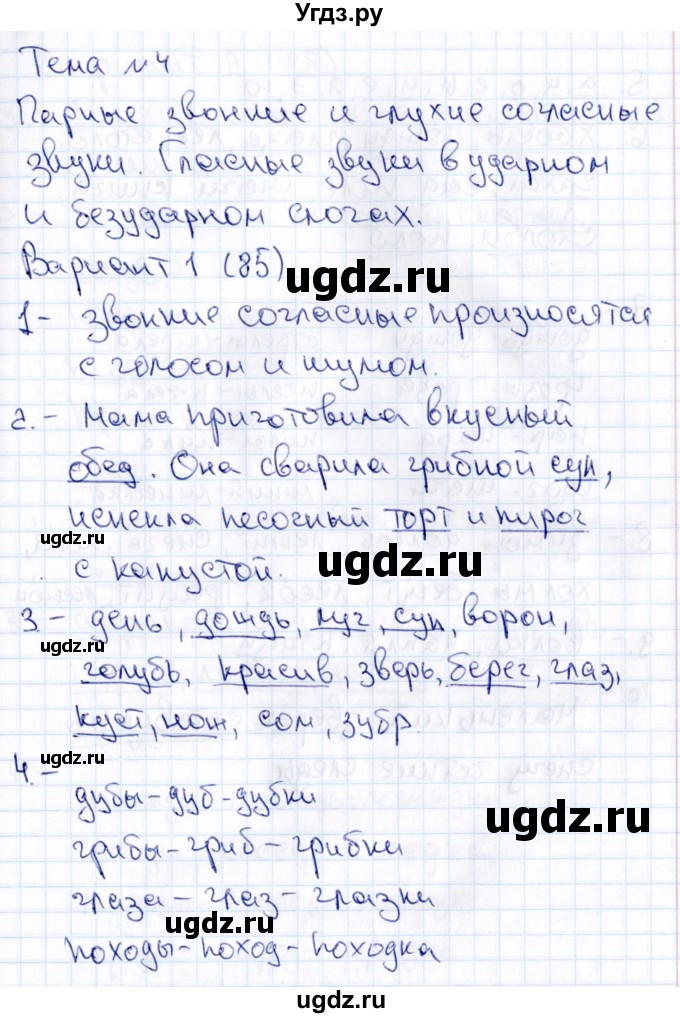 Угдз.ру
Тема № 4
Парные звонкие и глухие согласные
звуки. Гласные звуки в ударном
и безударном слогах.
Вариант 1 (85)
ugdz.ru
1- Звонкие согласные произносятся
с голосом и шумом.
ugdz.ru
2.- Мама приготовила вкусный
обед. Она сварила грибной суп,
испекла песочный торт и пирог
ugdz.ru
с капустой.
ugdz.ru
3.- день, дождь, луг, суп, ворон,
ugdz.ru
голубь, красив, зверь, берег, глаз,
куст, нож, сом, зубр.
ugdz.ru
4.-
дубы-дуб-дубки
ugdz.ru
грибы-гриб-грибки
глаза-глаз-глазки
ugdz.ru
походы-поход-походка
ugdz.ru